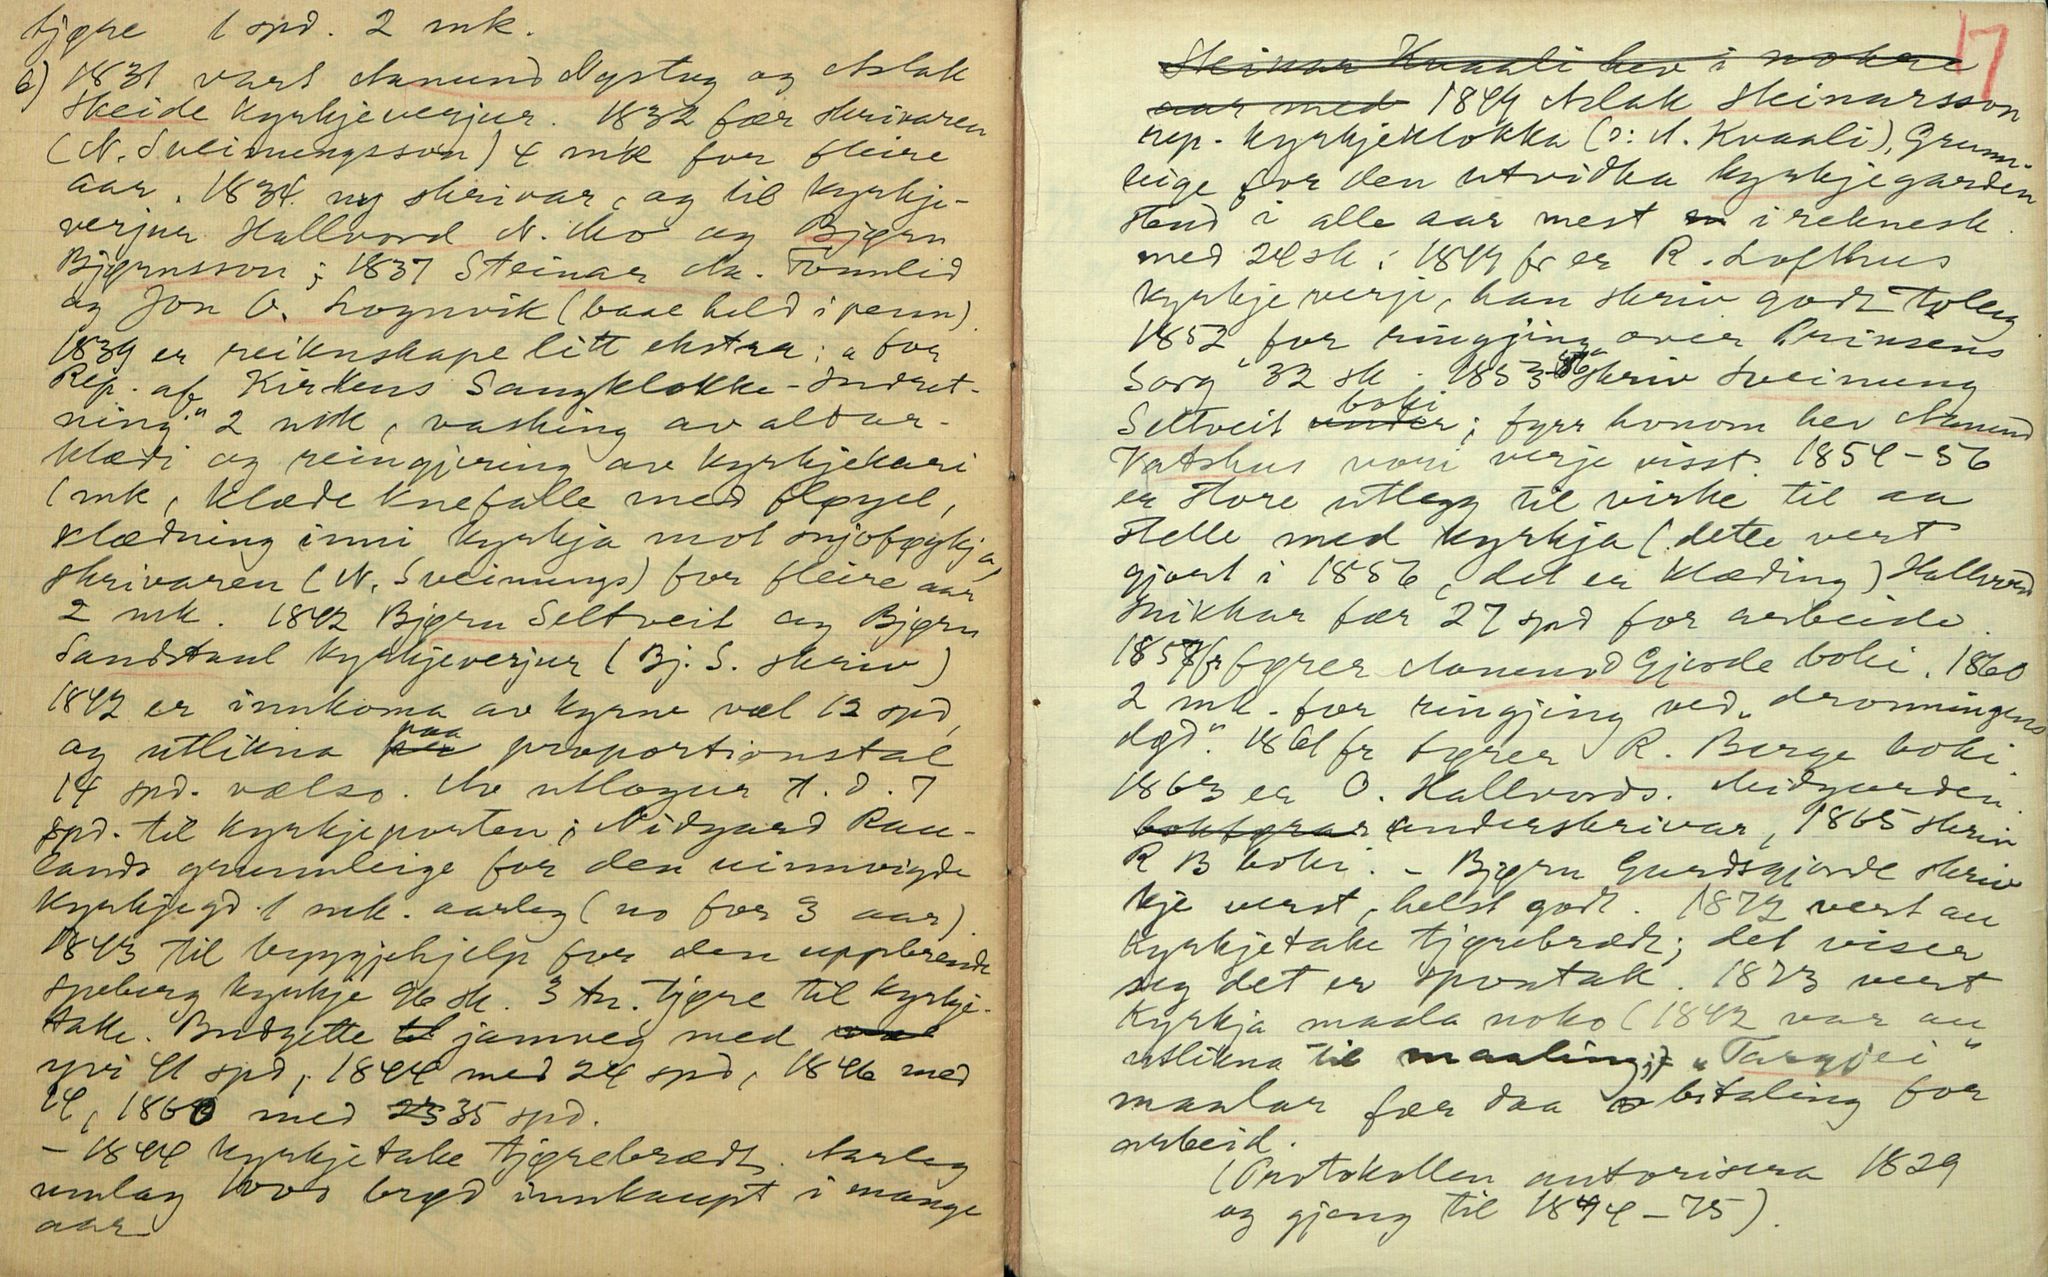 tjøre 1 spd. 2 mk.
6) 1831 vart Aamund Nystog og Aslak
Skeide kyrkjeverjur. 1832 fær skrivaren
(N. Sveinungsson) 4 mk for fleire
aar. 1834 ny skrivar, og til kyrkje-
verjur Hallvord N. Mo og Bjørn
Bjørnsson; 1837 Steinar Aa. Tomlid
og Jon O. Lognvik (baae held i penn).
1839 er reiknskape litt ekstra: a for
Rep. af Kirkens Sangklokke-Indret-
ning" 2 mk, vasking av altar-
klædi og reingjering av kyrkjekari
1 mk, klæde knefalle med fløyel,
klædning inni kyrkja mot snjoføykja,
skrivaren (N. Sveinungs) for fleire aar
2 mk. 1842 Bjørn Seltveit og Bjørn
Sandstaul kyrkjeverjur (Bj. S. skriv)
1842 er innkoma av kyrne væl 12 spd,
og utlikna paa proportionstal
14 spd. vælso. Av utlogur t. d. 7
spd. til kyrkjeporten; Nidgard Rau-
lands grunnleige for den uinnvigde
kyrkjegd. 1 mk. aarleg (no for 3 aar).
1843 til byggjehjelp for den uppbrende
Speberg kyrkje 96 sk. 3 tn. tjøre til kyrkje-
take. Budgette jamveg med
yvi 41 spd, 1844 med 24 spd, 1846 med
14, 1860 med 35 spd.
- 1844 kyrkjetake tjørebrædt. Aarleg
umlag vart brød innkaupt i mange
aar
17
Steinar Kvaali hev i nokre
aar med 1844 Aslak Steinarsson
rep. kyrkjeklokka (ɔ: A. Kvaali). Grunn-
leige for den utvidka kyrkjegarden
stend i alle aar mest i reknesk.
med 24 sk; 1849 fr er R. Lofthus
kyrkjeverje, han skriv godt toleg
1852 "for ringjing over Prinsens
Sorg" 32 sk. 1853-56 skriv Sveinung
Seltveit boki; fyrr honom hev Aamund
Vatshus vori verje visst. 1854-56
er store utlegg til virke til aa
stelle med kyrkja (dette vert
gjort i 1856, det er klæding) Hallvord
Snikkar fær 27 spd for arbeide.
1857 fr fører Aamund Gjerde boki. 1860
2 mk. for ringjing ved "dronningens
død". 1861 fr fører R. Berge boki
1863 er O. Hallvords. Midgarden
bokførar underskrivar, 1865 skriv
R B boki. - Bjørn Gardsgjorde skriv
kje verst, helst godt. 1872 vert au
kyrkjetake tjørebrædt; det viser
seg det er spontak. 1873 vert
kyrkja maala noko (1842 var au
utlikna til maaling;) "Targjei"
maalar fær daa bitaling for
arbeid.
(Protokollen autorisera 1829
og gjeng til 1874-75).